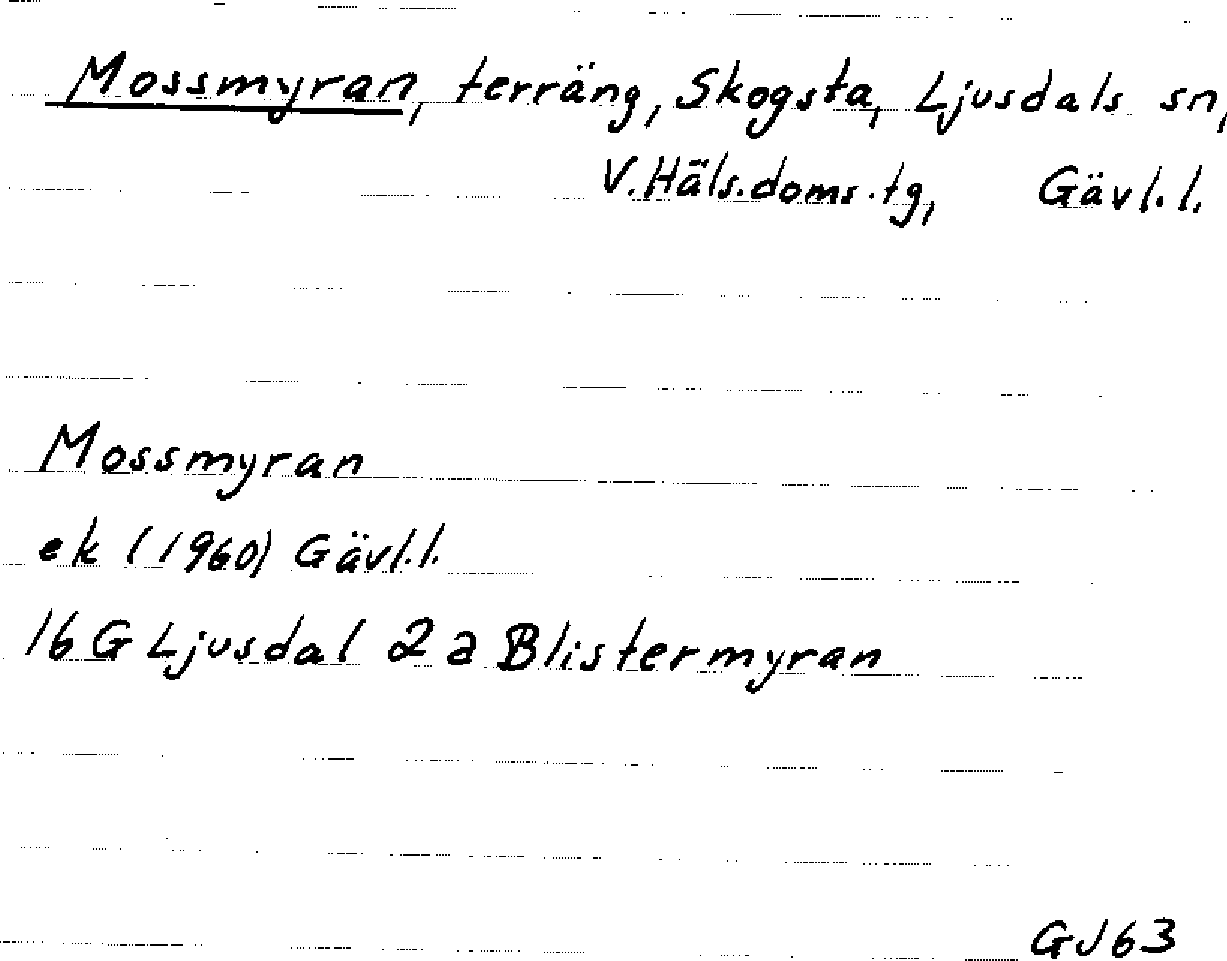 Mossmyran, terräng, Skogsta, Ljusdals sn,
V.Häls.doms.tg, Gävl.l.
Mossmyran
ek (1960) Gävl.l.
16 G Ljusdal 2 a Blistermyran
GJ63